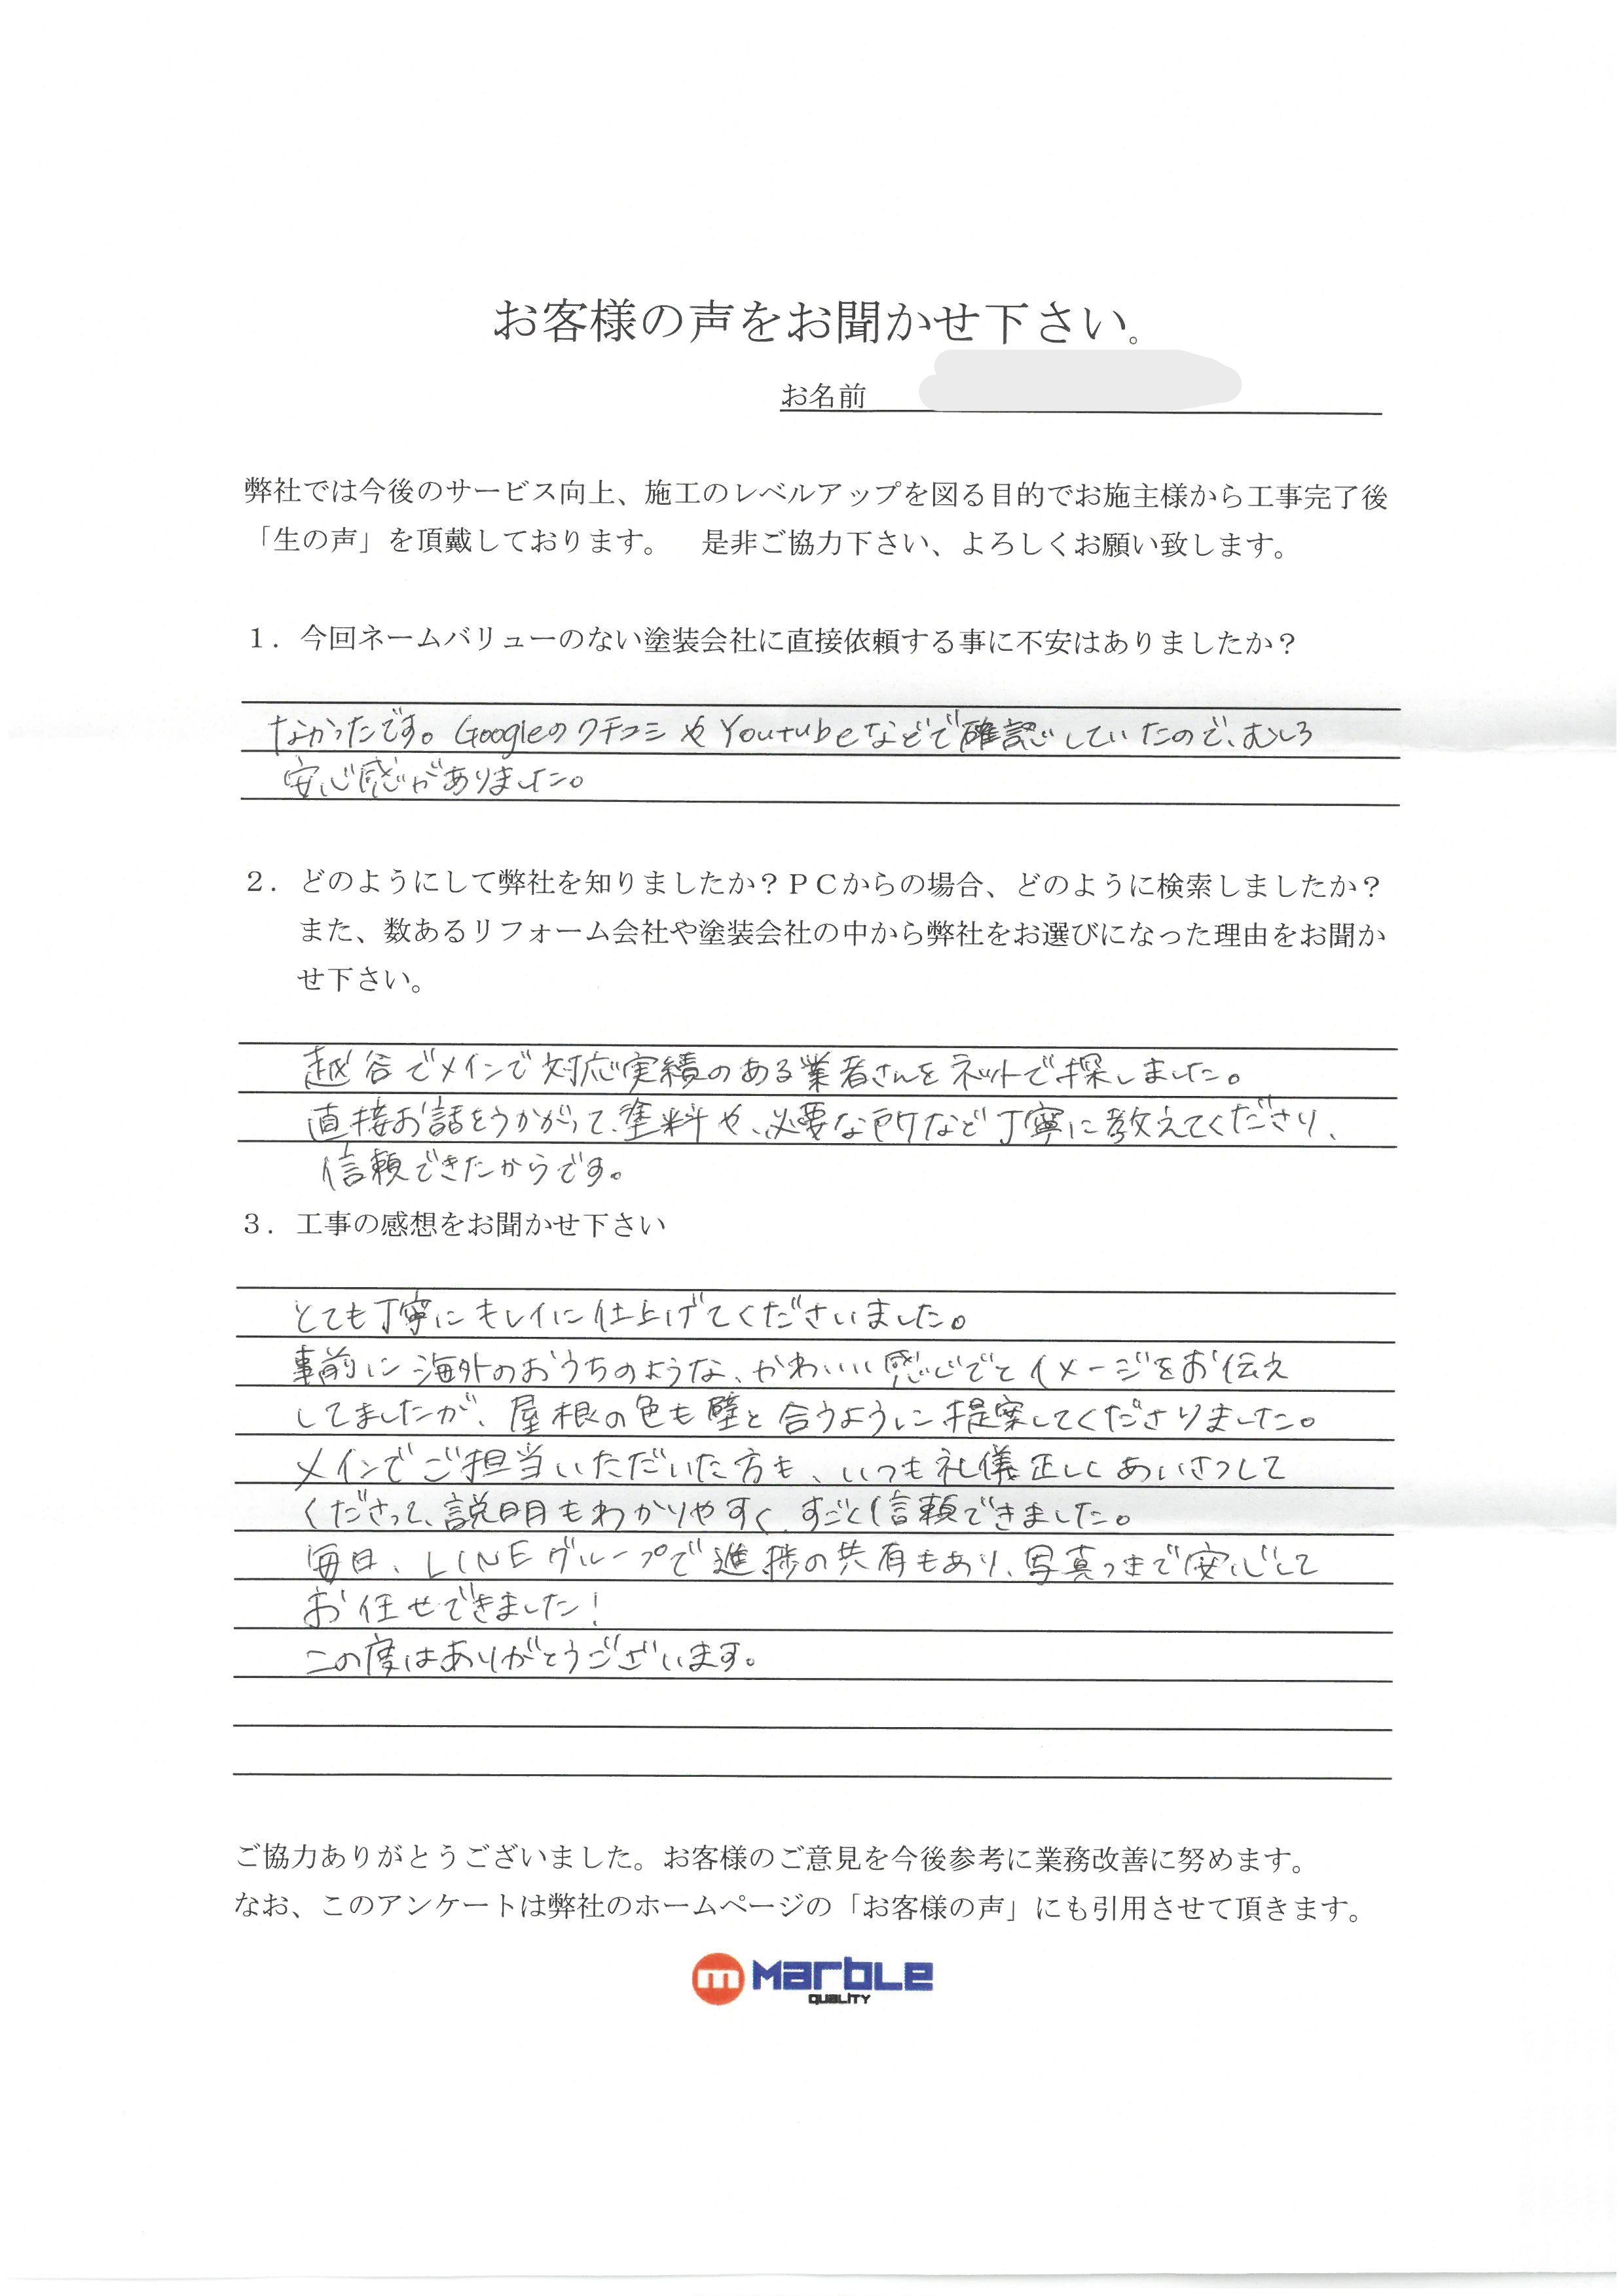 お客様の声をお聞かせ下さい。
お名前
弊社では今後のサービス向上、施工のレベルアップを図る目的でお施主様から工事完了後
「生の声」を頂戴しております。　是非ご協力下さい、よろしくお願い致します。
１．今回ネームバリューのない塗装会社に直接依頼する事に不安はありましたか？
なかったです。Googleのクチコミや Youtubeなどで確認していたので、むしろ
安心感がありました。
２．どのようにして弊社を知りましたか？ＰＣからの場合、どのように検索しましたか？
また、数あるリフォーム会社や塗装会社の中から弊社をお選びになった理由をお聞か
せ下さい。
越谷でメインで対応実績のある業者さんをネットで探しました。
直接お話をうかがって、塗料や、必要な所など丁寧に教えてくださり、
信頼できたからです。
３．工事の感想をお聞かせ下さい
とても丁寧にキレイに仕上げてくださいました。
事前に海外のおうちのような、かわいい感じでとイメージをお伝え
してましたが、屋根の色も壁と合うように提案してくださりました。
メインでご担当いただいた方も、いつも礼儀正しくあいさつして
くださって、説明もわかりやすく、すごく信頼できました。
毎日、LINEグループで進捗の共有もあり、写真つきで安心して
お任せできました!
この度はありがとうございます。
ご協力ありがとうございました。お客様のご意見を今後参考に業務改善に努めます。
なお、このアンケートは弊社のホームページの「お客様の声」にも引用させて頂きます。
m Marble
QUALITY